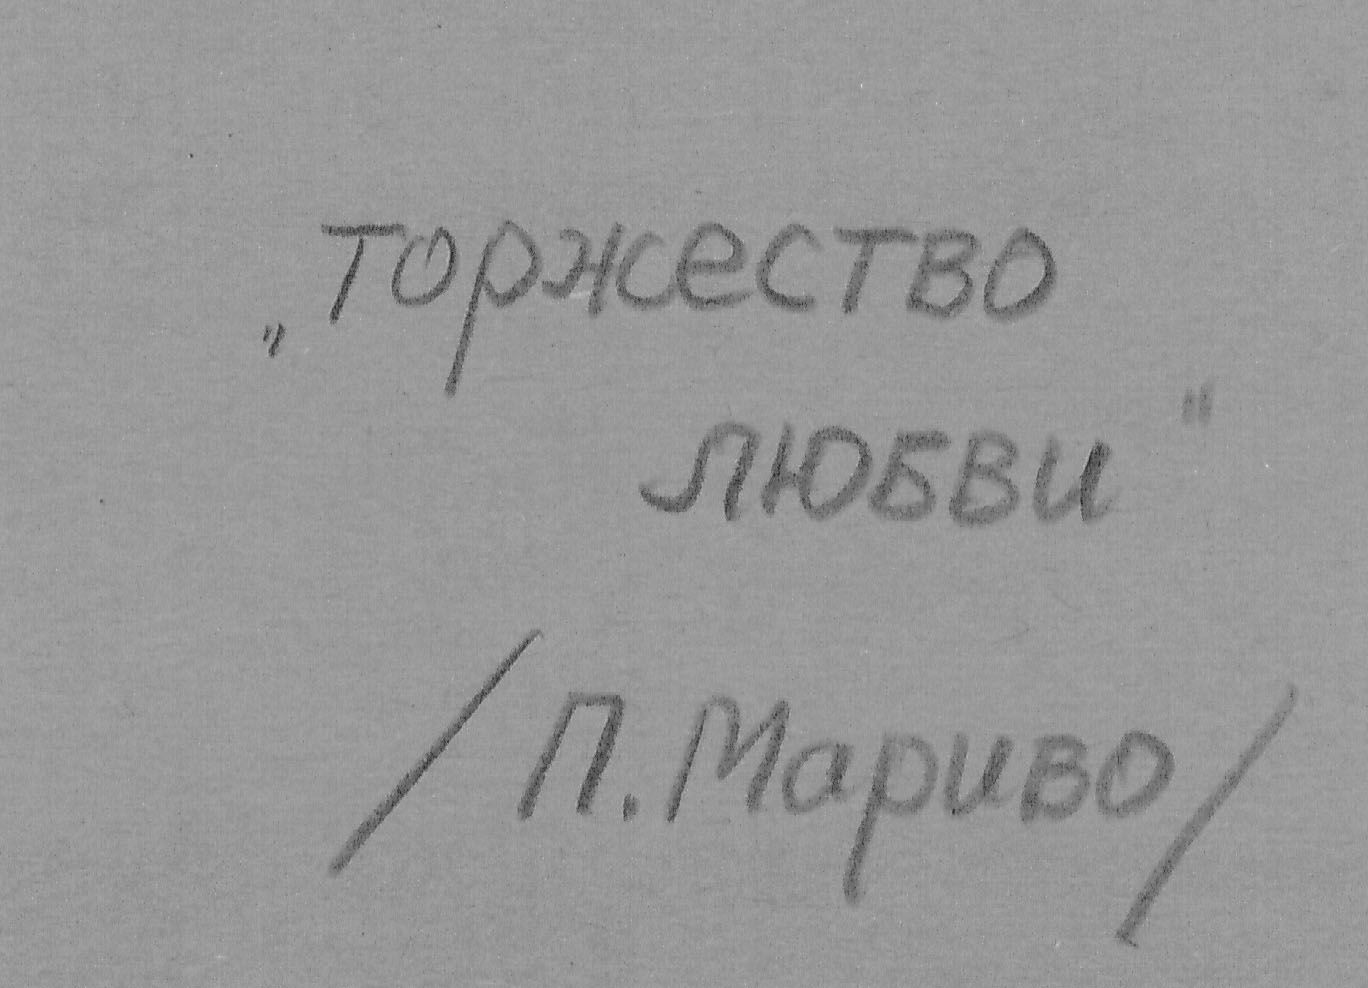 „торжество
любви"
/П. Мариво/